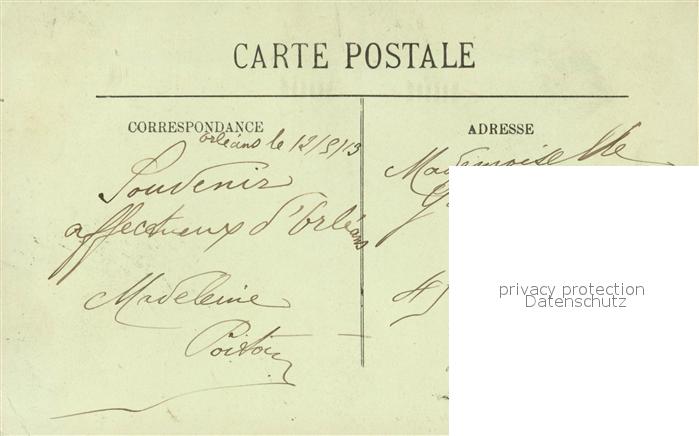 CARTE POSTALE
CORRESPONDANCE
ADRESSE
Orléans le 12/9/13
Souvenir
affectueux d'Orléans
Madeleine
Mademoiselle
privacy protection
Datenschutz